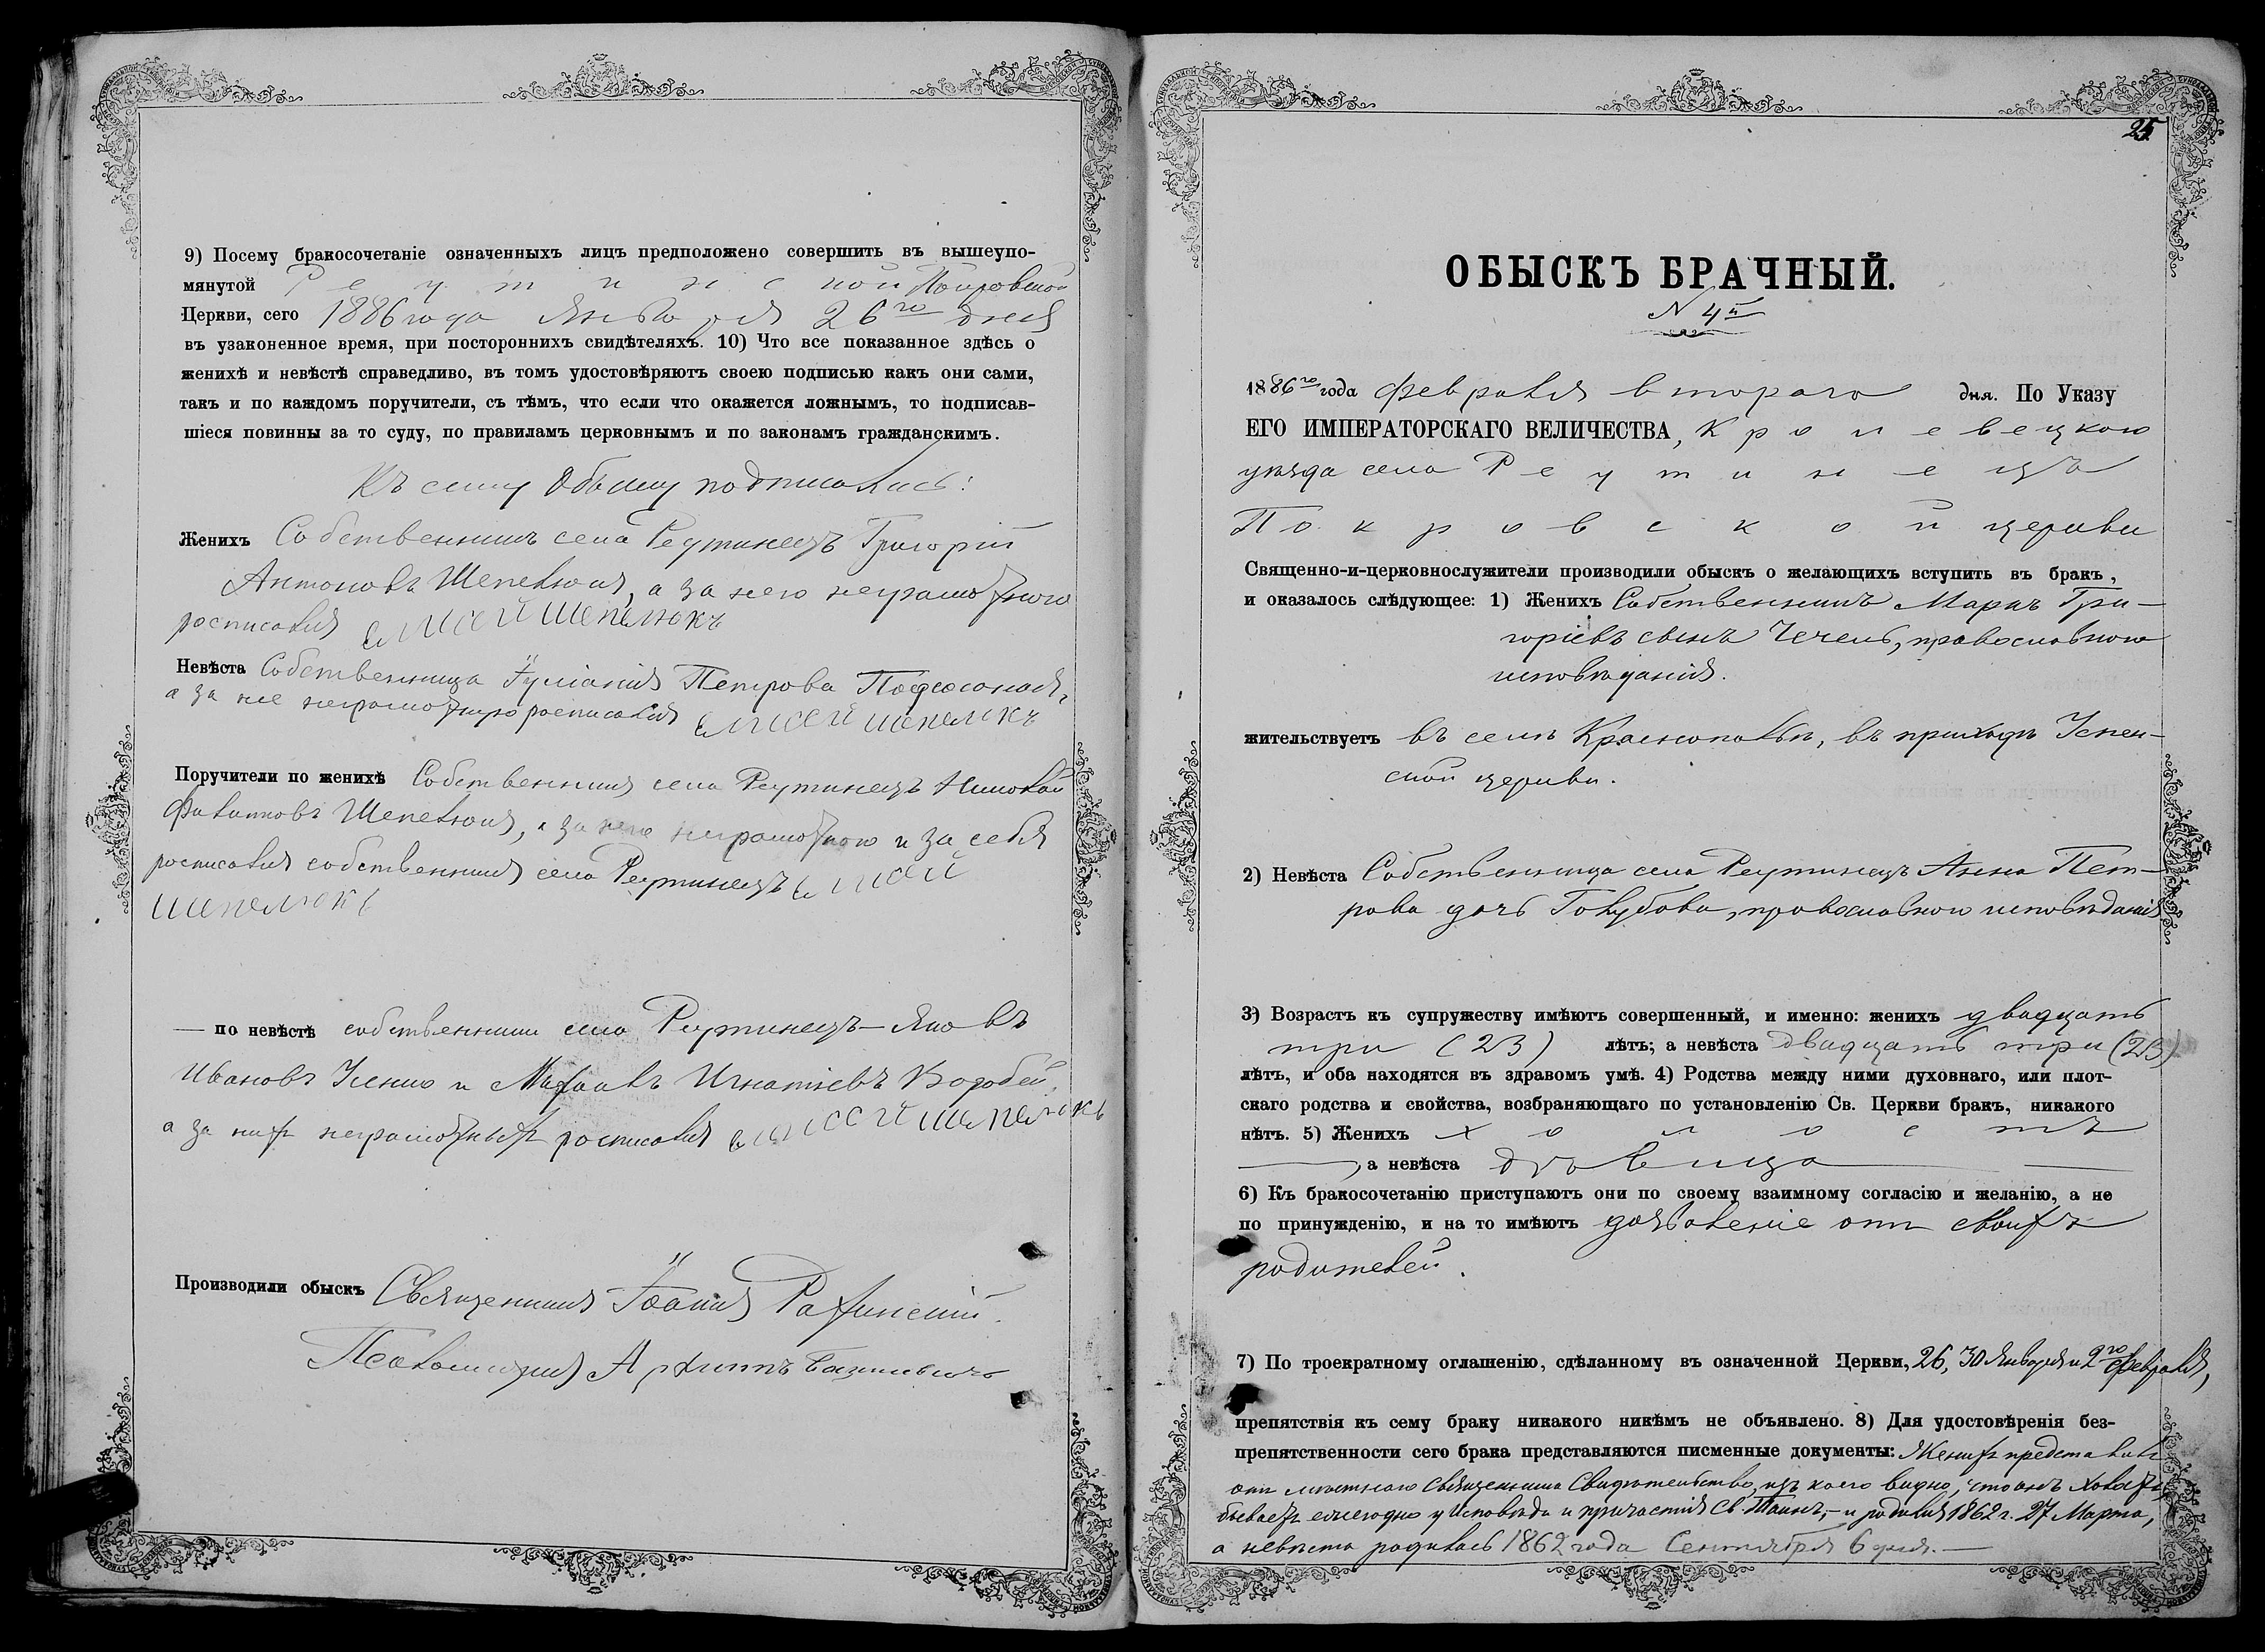 9) Посему бракосочетаніе означенныхъ лицъ предположено совершить въ вышеупо-
мянутой Реутинской Покровской
Церкви, сего 1886 года Января 26го дня
въ узаконенное время, при постороннихъ свидѣтеляхъ. 10) Что все показанное здѣсь о
женихѣ и невѣстѣ справедливо, въ томъ удостовѣряютъ своею подписью какъ они сами,
такъ и по каждомъ поручители, съ тѣмъ, что если что окажется ложнымъ, то подписав-
шіеся повинны за то суду, по правиламъ церковнымъ и по законамъ гражданскимъ.
Къ сему Обыску подписались:
Женихъ Собственникъ села Реутинецъ Григорій
Антоновъ Шепелюкъ, а за него неграмотного
росписался елисей шепелюкъ
Невѣста Собственница Іуліанія Петрова
а за нее неграмотную росписался елисей шепелюкъ
Поручители по женихѣ Собственникъ села Реутинецъ Николай
Филиповъ Шепелюкъ, а за него неграмотного и за себя
росписался собственникъ села Реутинецъ елисей
шепелюкъ
— по невѣстѣ собственники села Реутинецъ – Яковъ
Ивановъ и Михаилъ Игнатіевъ Воробей,
а за нихъ неграмотныхъ росписался елисей шепелюкъ
Производили обыскъ Священникъ Іоаннъ Рахинскій.
Псаломщикъ Архиппъ
25
ОБЫСКЪ БРАЧНЫЙ.
N 4й
1886го года февраля втораго дня. По Указу
ЕГО ИМПЕРАТОРСКАГО ВЕЛИЧЕСТВА, Кролевецкого
уѣзда села Реутинецъ
Покровской церкви
Священно-и-церковнослужители производили обыскъ о желающихъ вступить въ бракъ,
и оказалось слѣдующее: 1) Женихъ Собственникъ Маркъ Гри-
горіевъ сынъ Чечель, православного
исповѣданія.
жительствуетъ въ селѣ Краснопольѣ, въ приходѣ Успен-
ской церкви.
2) Невѣста Собственница села Реутинецъ Анна Пет-
рова дочь Голубова, православного исповѣданія
3) Возрастъ къ супружеству имѣютъ совершенный, и именно: женихъ двадцать
три (23) лѣтъ; а невѣста двадцать три (23)
лѣтъ, и оба находятся въ здравомъ умѣ. 4) Родства между ними духовнаго, или плот-
скаго родства и свойства, возбраняющаго по установленію Св. Церкви бракъ, никакого
нѣтъ. 5) Женихъ холостъ
, а невѣста дѣвица
6) Къ бракосочетанію приступаютъ они по своему взаимному согласію и желанію, а не
по принужденію, и на то имѣютъ дозволеніе отъ своихъ
родителей.
7) По троекратному оглашенію, сдѣланному въ означенной Церкви, 26, 30 Января и 2го февраля,
препятствія къ сему браку никакого никѣмъ не объявлено. 8) Для удостовѣренія без-
препятственности сего брака представляются писменные документы: Женихъ представилъ
отъ мѣстного священника Свидѣтельство, изъ коего видно, что онъ холостъ,
бываетъ ежегодно у Исповѣди и причастія Св. Таинъ, – и родился 1862 г. 27 Марта,
а невѣста родилась 1862 года Сентября 6 дня. —